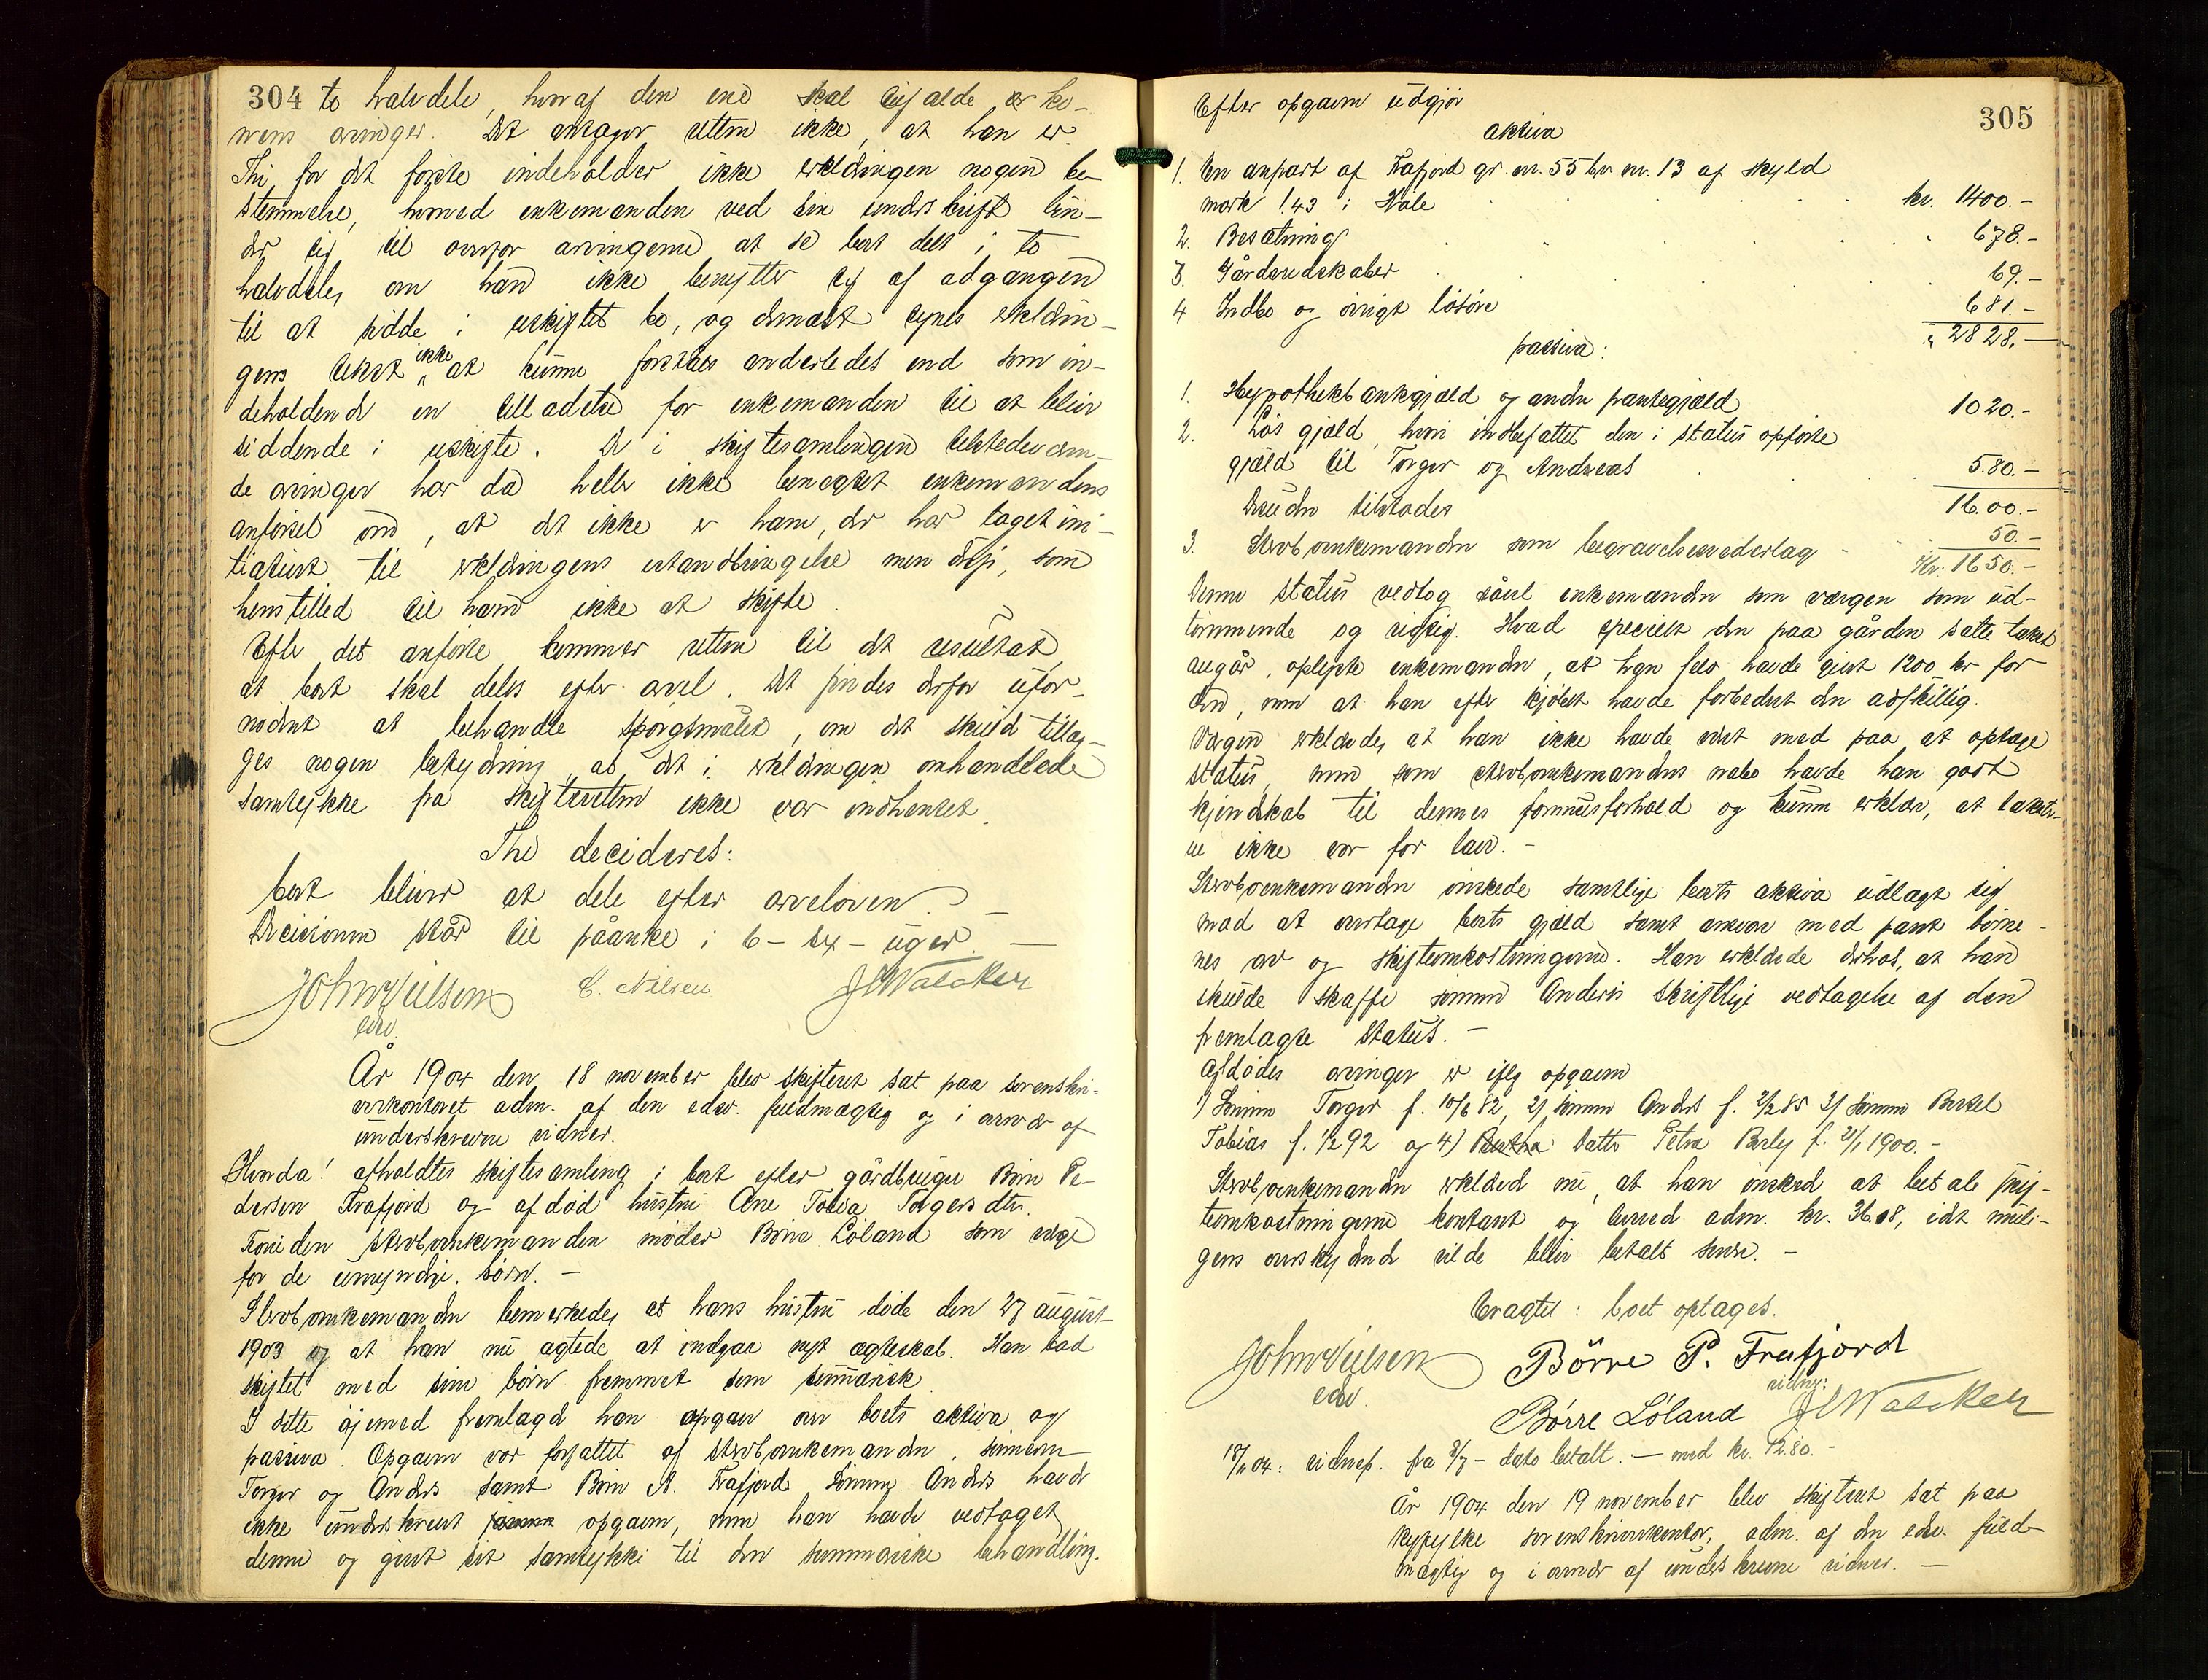 304 to halvdele, hvoraf den ene skal tilfalde
arvinger. Det antager retten ikke, at han er.
Thi for det første indeholder ikke erklæringen nogen be-
stemmelse, hvorved enkemanden ved sin underskrift bin-
der sig til overfor arvingerne at se boet delt i to
halvdele, om han ikke benytter sig af adgangen
til at sidde i uskiftet bo, og dernæst synes erklærin-
gens tekst ikke at kunne forståes anderledes end som in-
deholdende en tilladelse for enkemanden til at blive
siddende i uskifte. De i skiftesamlingen tilstedeværen-
de arvinger har da heller ikke benægtet enkemandens
anførsel om, at det ikke er ham, der har taget ini-
tiativet til erklæringens istandbringelse men de, som
henstillede til ham ikke at skifte.
Efter det anførte kommer retten til det resultat,
at boet skal deles efter arvel. Det findes derfor ufor-
nødent at behandle spørgsmålet, om det skulde tillæg-
ges nogen betydning, at det i erklæringen omhandlede
samtykke fra skifteretten ikke var indhentet.
Thi decideres:
boet bliver at dele efter arveloven. —
Decisionen står til påanke i 6 - sex - uger. —
John Nielsen C. Nilsen J Walcker
edsv.
År 1904 den 18 november blev skifteret sat paa sorenskri-
verkontoret adm. af den edsv. fuldmægtig og i overvær af
underskrevne vidner.
Hvorda! afholdtes skiftesamling i boet efter gårdbruger Børre Pe-
dersen Frafjord og afdød hustru Ane Tobia Torgersdtr.
Foruden sterboenkemanden møder Børre Løland som verge
for de umyndige børn. —
Sterboenkemanden bemerkede, at hans hustru døde den 27 august
1903 og at han nu agtede at indgaa nyt ægteskab. Han bad
skiftet med sine børn fremmet som summarisk.
I dette øjemed fremlagde han opgave over boets aktiva og
passiva. Opgaven var forfattet af sterboenkemanden, sønnerne
Torger og Anders samt Børre A. Frafjord. Sønnen Anders havde
ikke underskrevet opgaven, men han havde vedtaget
denne og givet sit samtykke til den summariske behandling.
305
Efter opgaven udgjør
aktiva
1. En anpart af Frafjord gr. nr. 55 br. nr. 13 af skyld
mark 1.43 i Høle kr. 1400.-
2. Besætning 678.-
3. Gårdsredskaber 69.-
4 Indbo og øvrigt løsøre 681.-
" 2828.-
passiva:
1. Hypothekbankgjæld og anden pantegjæld 1020.-
2. Løs gjæld, heri indbefattet den i status opførte
gjæld til Torger og Andreas 580.-
Desuden tilstodes 1600.-
3. Sterboenkemanden som begravelsesvederlag 50.-
Kr. 1650.-
Denne status vedtog såvel enkemanden som vergen som ud-
tømmende og rigtig. Hvad specielt den paa gården satte takst
angår, oplyste enkemanden, at han selv havde givet 1200 kr for
den, men at han efter kjøbet havde forbedret den adskillig.
Vergen erklærede, at han ikke havde været med paa at optage
status, men som sterboenkemandens nabo havde han godt
kjendskab til dennes formuesforhold og kunne erklære, at taksti-
ne ikke var for lave. -
Sterboenkemanden ønskede samtlige boets aktiva udlagt sig
mod at overtage boets gjæld samt ansvar med pant børne-
nes arv og skifteomkostningerne. Han erklærede derhos, at han
skulde skaffe sønnen Anders's skriftlige vedtagelse af den
fremlagte status. -
Afdødes arvinger er iflg opgaven
1) Sønnen Torger f. 10/6 82, 2) sønnen Anders f. 2/2 85 3) sønnen Bertel
Tobias f. 1/2 92 og 4) datter Petra f. 21/1 1900. -
Sterboenkemanden erklærede nu, at han ønskede at betale skif-
teomkostningerne kontant og leverede adm. kr. 36.08, idet muli-
gens overskydende vilde blive betalt senere. -
Eragtet: boet optages.
John Nielsen Börre P. Frafjord
edsv. vidne:
Börre Löland J Walcker
18/11 04: vidnef. fra 3/7 - dato betalt. — med kr. 12.80. -
År 1904 den 19 november blev skifteret sat paa
sorenskriverkontor, adm. af den edsv. fuld-
mægtig og i overvær af underskrevne vidner. —